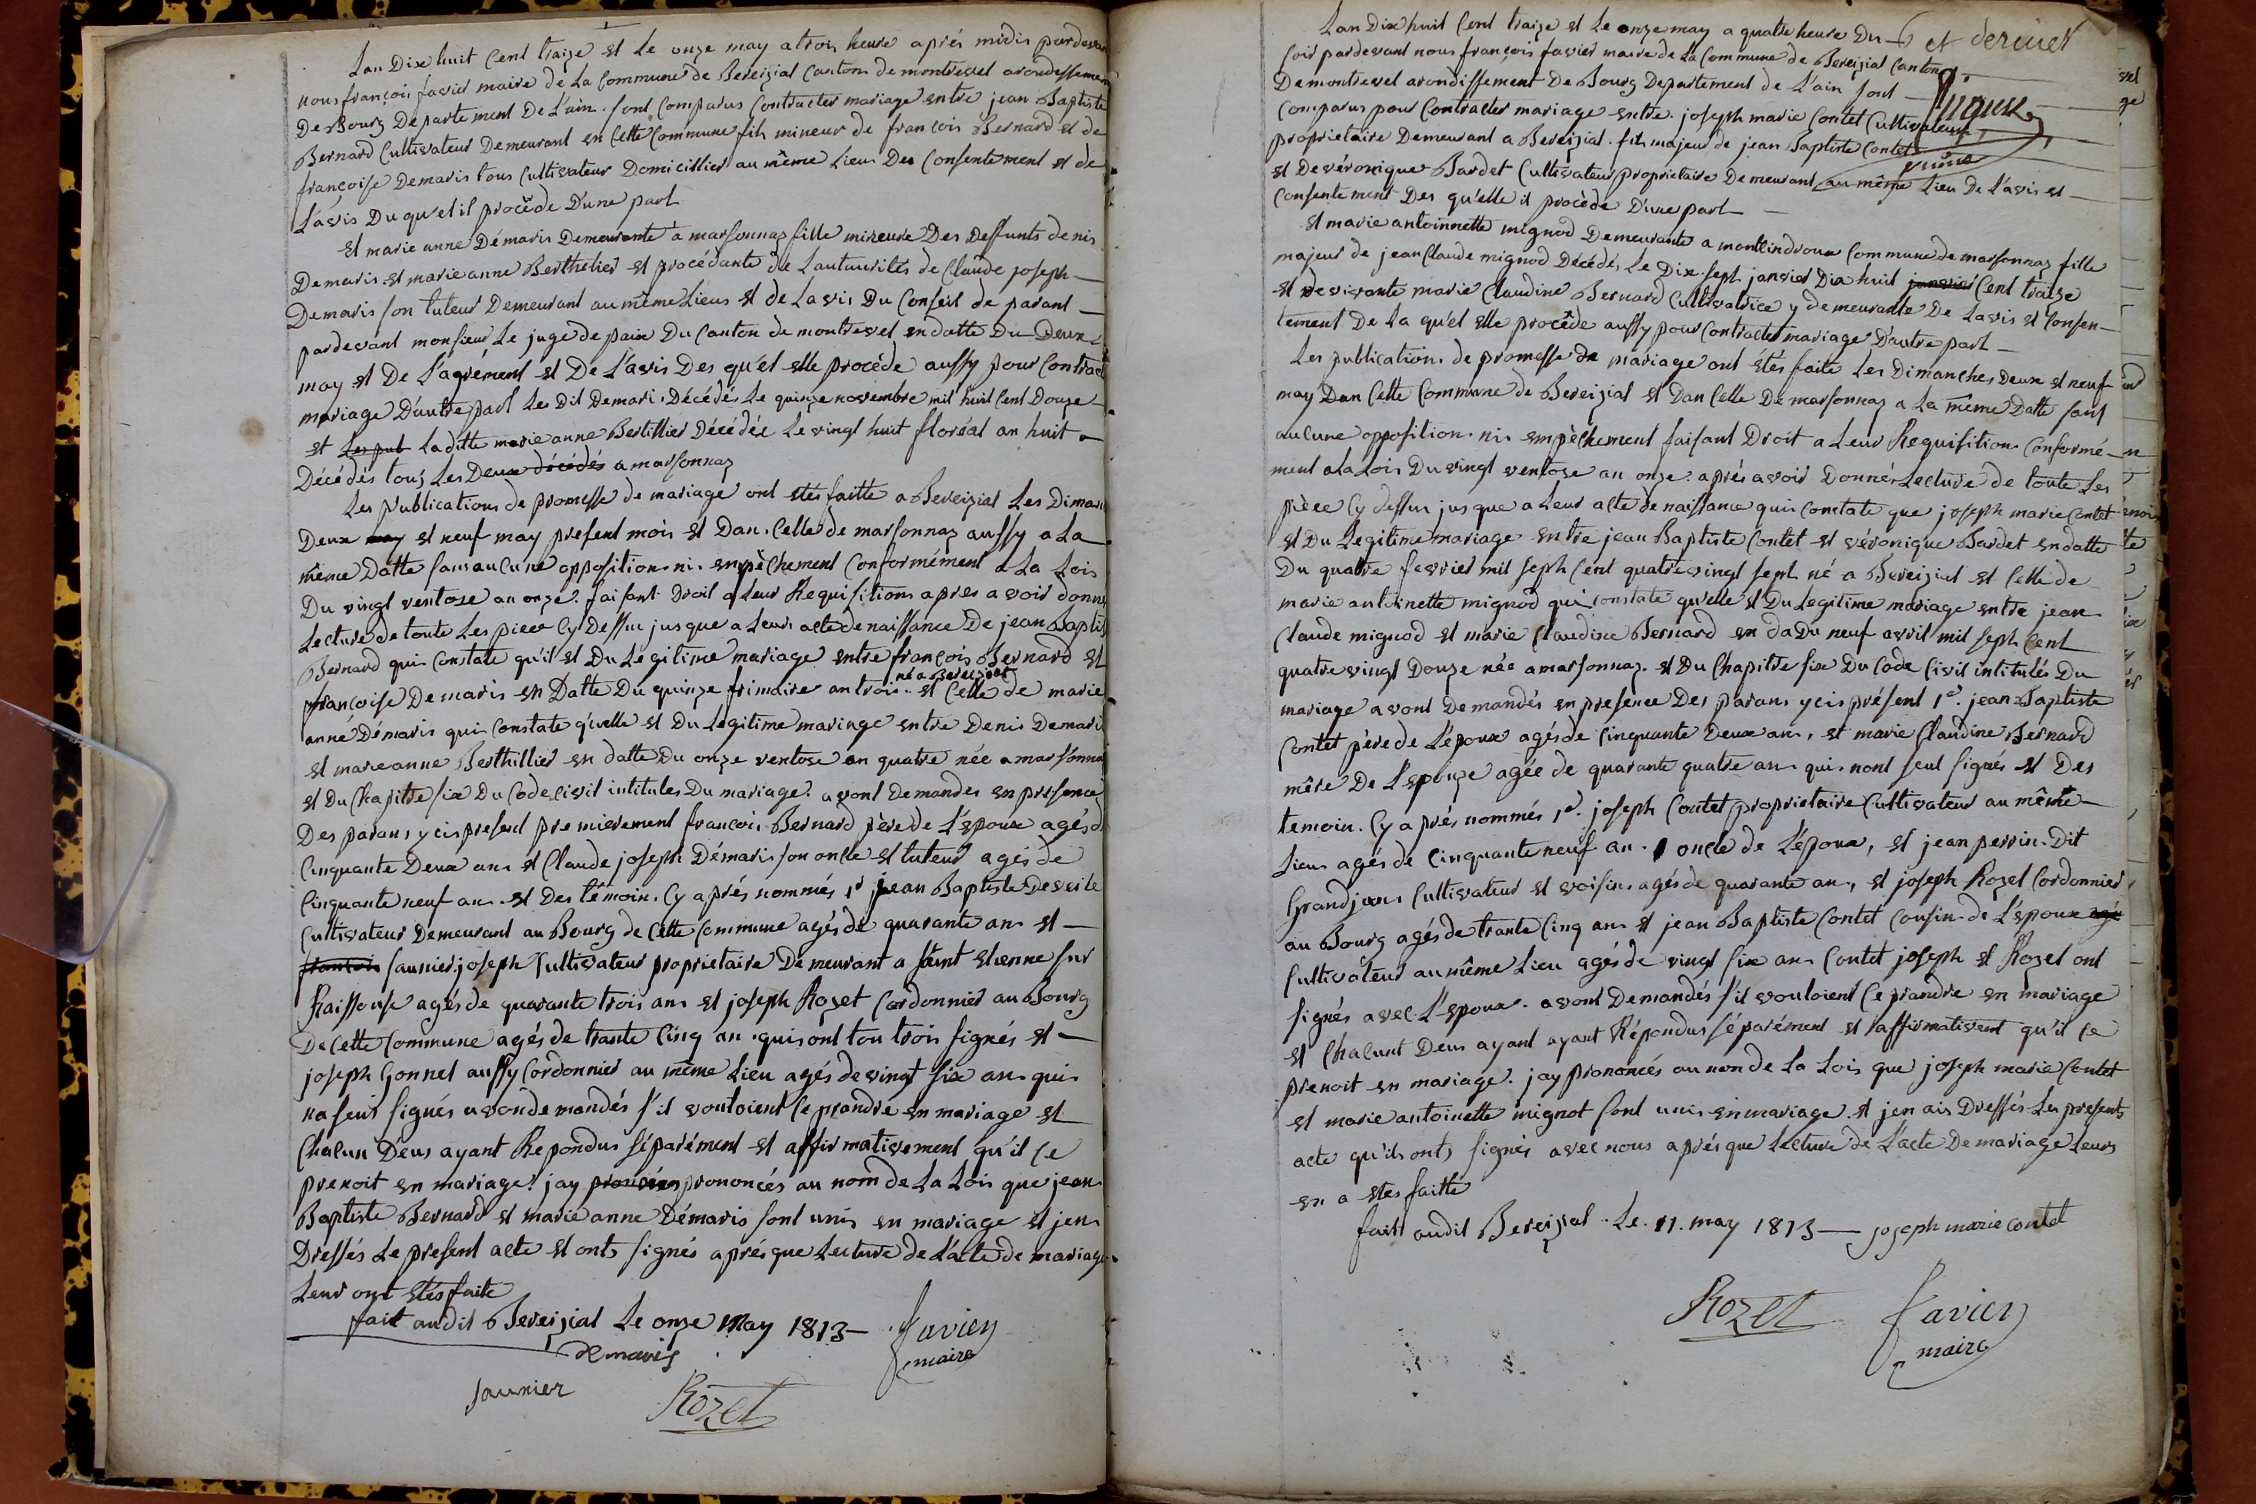 Lan Dix huit Cent traize et Le onze may a trois heure aprés midis pardevan
nous françois favier maire de La Commune de Bereizial Canton de montrevel arondissemen
De Bourg Departement De L'ain. sont Comparus Contracter mariage entre jean Baptiste
Bernard Cultivateur Demeurant en Cette Commune fils mineur de francois Bernard et de
françoise Demaris tous Cultivateur Domicillier au même Lieu Des Consentement et de
L'avis Du qu'el il procède D'une part
et marie anne Démaris Demeurante a marsonnaz fille mineure Des Deffunts denis
Demaris et marie anne Berthelier et procédante de Lautaurités de Claude joseph
Demaris son tuteur Demeurant au même Lieus et de Lavis Du Conseil de parant
pardevant monsieur Le juge de paix Du Canton de montrevel en datte Du Deux
may et De L'agrément et De L'avis Des qu'el elle procède aussy pour Contract
mariage D'autre part Les Dit Demari Décédés Le quinze novembre mil huit Cent Douze
et Les pub La ditte marie anne Bertillier Décédée Le vingt huit floréal an huit
Décédés touz Les Deux décédés a marsonnaz
Les publications de promesse de mariage ont étés faitte a Bereizial Les Diman
Deux may et neuf may present mois et Dans Celle de marsonnaz aussy a La
même Datte sans aucune opposition ni empèchement Conformément a La Lois
Du vingt ventose an onze. faisant Droit a Leur Requisitions apres avoir donné
Lecture de toute Les piece Cy Dessu jusque a Leurs acte de naissance De jean Baptis
Bernard qui Constate qu'il et Du Legitime mariage entre françois Bernard et
né a Bereizial
françoise Demaris en Datte Du quinze frimaire an trois et Celle de marie
anne Démaris qui Constate q'uelle et Du Legitime mariage entre Denis Demari
et marie anne Berthillier en datte Du onze ventose an quatre née a marsonna
et Du Chapitre six Du Code civil intitules Du mariage. avont Demandes en presence
Des parans y cis present premierement francois Bernard père de L'epoux agés d
Cinquante Deux ans et Claude joseph Démaris son oncle et tuteur agés de
Cinquante neuf an. et Des témoins Cy aprés nommés 1er jean Baptiste
Cultivateur Demeurant au Bourg de Cette Commune agés de quarante ans et
françois saunier joseph Cultivateur proprietaire Demeurant a saint etienne sur
Raissouse agés de quarante trois ans et joseph Rozet Cordonnier au Bourg
De Cette Commune agés de trante Cinq an quis ont tou trois signés et
joseph Gonnet aussy Cordonnier au même Lieu agés de vingt six ans qui
na seut signés avon demandés s'il vouloient Ce prandre en mariage et
Chacun Deus ayant Repondus séparément et affirmativement qu'il Ce
prenoit en mariage. jay prononcés au nom de La Lois que jean
Baptiste Bernard et marie anne Démaris sont unis en mariage et jen
Dressés Le present acte et onts signés aprés que Lecture de L'acte de mariage
Leur ont étés faite
fait audit Bereizial Le onze may 1813 favier
maire
Demaris
saunier
Rozet
6 et dernier
Lan Dix huit Cent traize et Le onze may a quatre heure Du
soir pardevant nous françois favier maire de La Commune de Bereizial Canton
De montrevel arondissement De Bourg Departement de L'ain sont
Comparus pour Contracter mariage entre joseph marie Contet Cultivateur
proprietaire Demeurant a Bereizial. fils majeur de jean Baptiste Contet
et De véronique Bardet Cultivateur proprietaire Demeurant au même Lieu de L'avis et
Consentement Des qu'elle il procède D'une part
et marie antoinnette mignod Demeurante a montcindroux Commune de marsonnaz fille
majeur de jean Claude mignod Décédé, Le Dix sept janvier Dix huit janvier Cent traize
et De vivante marie Claudine Bernard Cultivatrice y demeurante De Lavis et Consen-
tement De La qu'el elle procède aussy pour Contracter mariage D'autre part
Les publication de promesse de mariage ont étés faite Les Dimanches Deux et neuf
may Dan Cette Commune de Bereizial et Dan Celle De marsonnaz a La même Datte sans
aucune opposition ni empèchement faisant Droit a Leur Requisition Conformé-
ment a La Lois Du vingt ventose an onze. aprés avoir Donnés Lecture de toute Les
pièce Cy dessu jusque a Leur acte de naissance qui constate que joseph marie Contet
et Du Legitime mariage entre jean Baptiste Contet et véronique Bardet en datte
Du quatre fevrier mil seph Cent quatre vingt sept né a Bereizial et Celle de
marie antoinette mignod qui constate qu'elle et Du Legitime mariage entre jean
Claude mignod et marie Claudine Bernard en da Du neuf avril mil seph Cent
quatre vingt Douze née a marsonnaz. et Du Chapitre six Du Code Civil intitulés Du
mariage avont Demandés en presence Des parans y cis présent 1er. jean Baptiste
Contet père de L'époux agés de Cinquante Deux ans, et marie Claudine Bernard
mère De L'epouze agée de quarante quatre ans quis nont seut signés et Des
temoin Cy aprés nommés 1er. joseph Contet proprietaire Cultivateur au même
Lieu agés de Cinquante neuf an. oncle de L'époux, et jean perrin Dit
Grandjean Cultivateur et voisin agés de quarante an, et joseph Rozet Cordonnier
au Bourg agés de trante Cinq ans et jean Baptiste Contet Cousin de L'epoux
Cultivateur au même Lieu agés de vingt six ans Contet joseph et Rozet ont
signés avec L'epoux. avont Demandés s'il vouloient Ce prandre en mariage
et Chacunt Deux ayant ayant Répondus séparément et affirmativent qu'il ce
prenoit en mariage. jay prononcés au nom de La Lois que joseph marie Contet
et marie antoinette mignot sont unis en mariage et jen ais Dressés Les presents
acte qu'ils onts signés avec nous aprés que Lecture de L'acte De mariage Leurs
en a étes faitte
fait audit Bereizial. Le. 11. may 1813 joseph marie contet
Rozet favier
maire